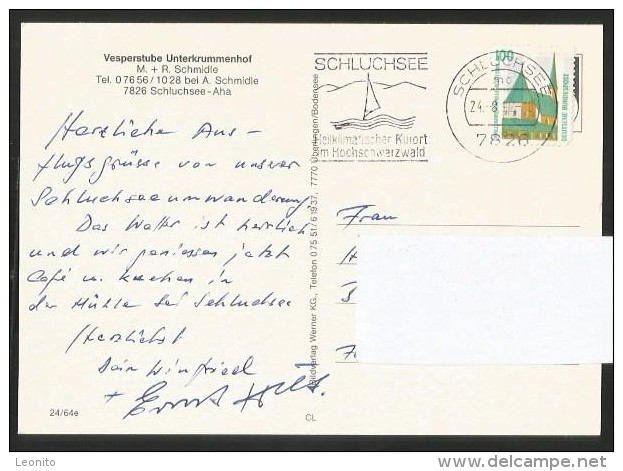 Vesperstube Unterkrummenhof
M. + R. Schmidle
Tel. 0 76 56 / 10 28 bei A. Schmidle
7826 Schluchsee-Aha
SCHLUCHSEE
Heilklimatischer Kurort
im Hochschwarzwald
SCHLUCHSEE
mc
24.-8.
7826
100
DEUTSCHE BUNDESPOST
Herzliche Aus-
flugsgrüsse von unserer
Schluchseeumwanderung.
Das Wetter ist herrlich
und wir geniessen jetzt
Café u. Kuchen in
der Mühle bei Schluchsee
Herzlichst
Dein Winfried
+ Ernst
Bildverlag Werner KG., Telefon 0 75 51/6 19 37, 7770 Überlingen/Bodensee
Frau
24/64e
CL
Leonito
delcampe.net